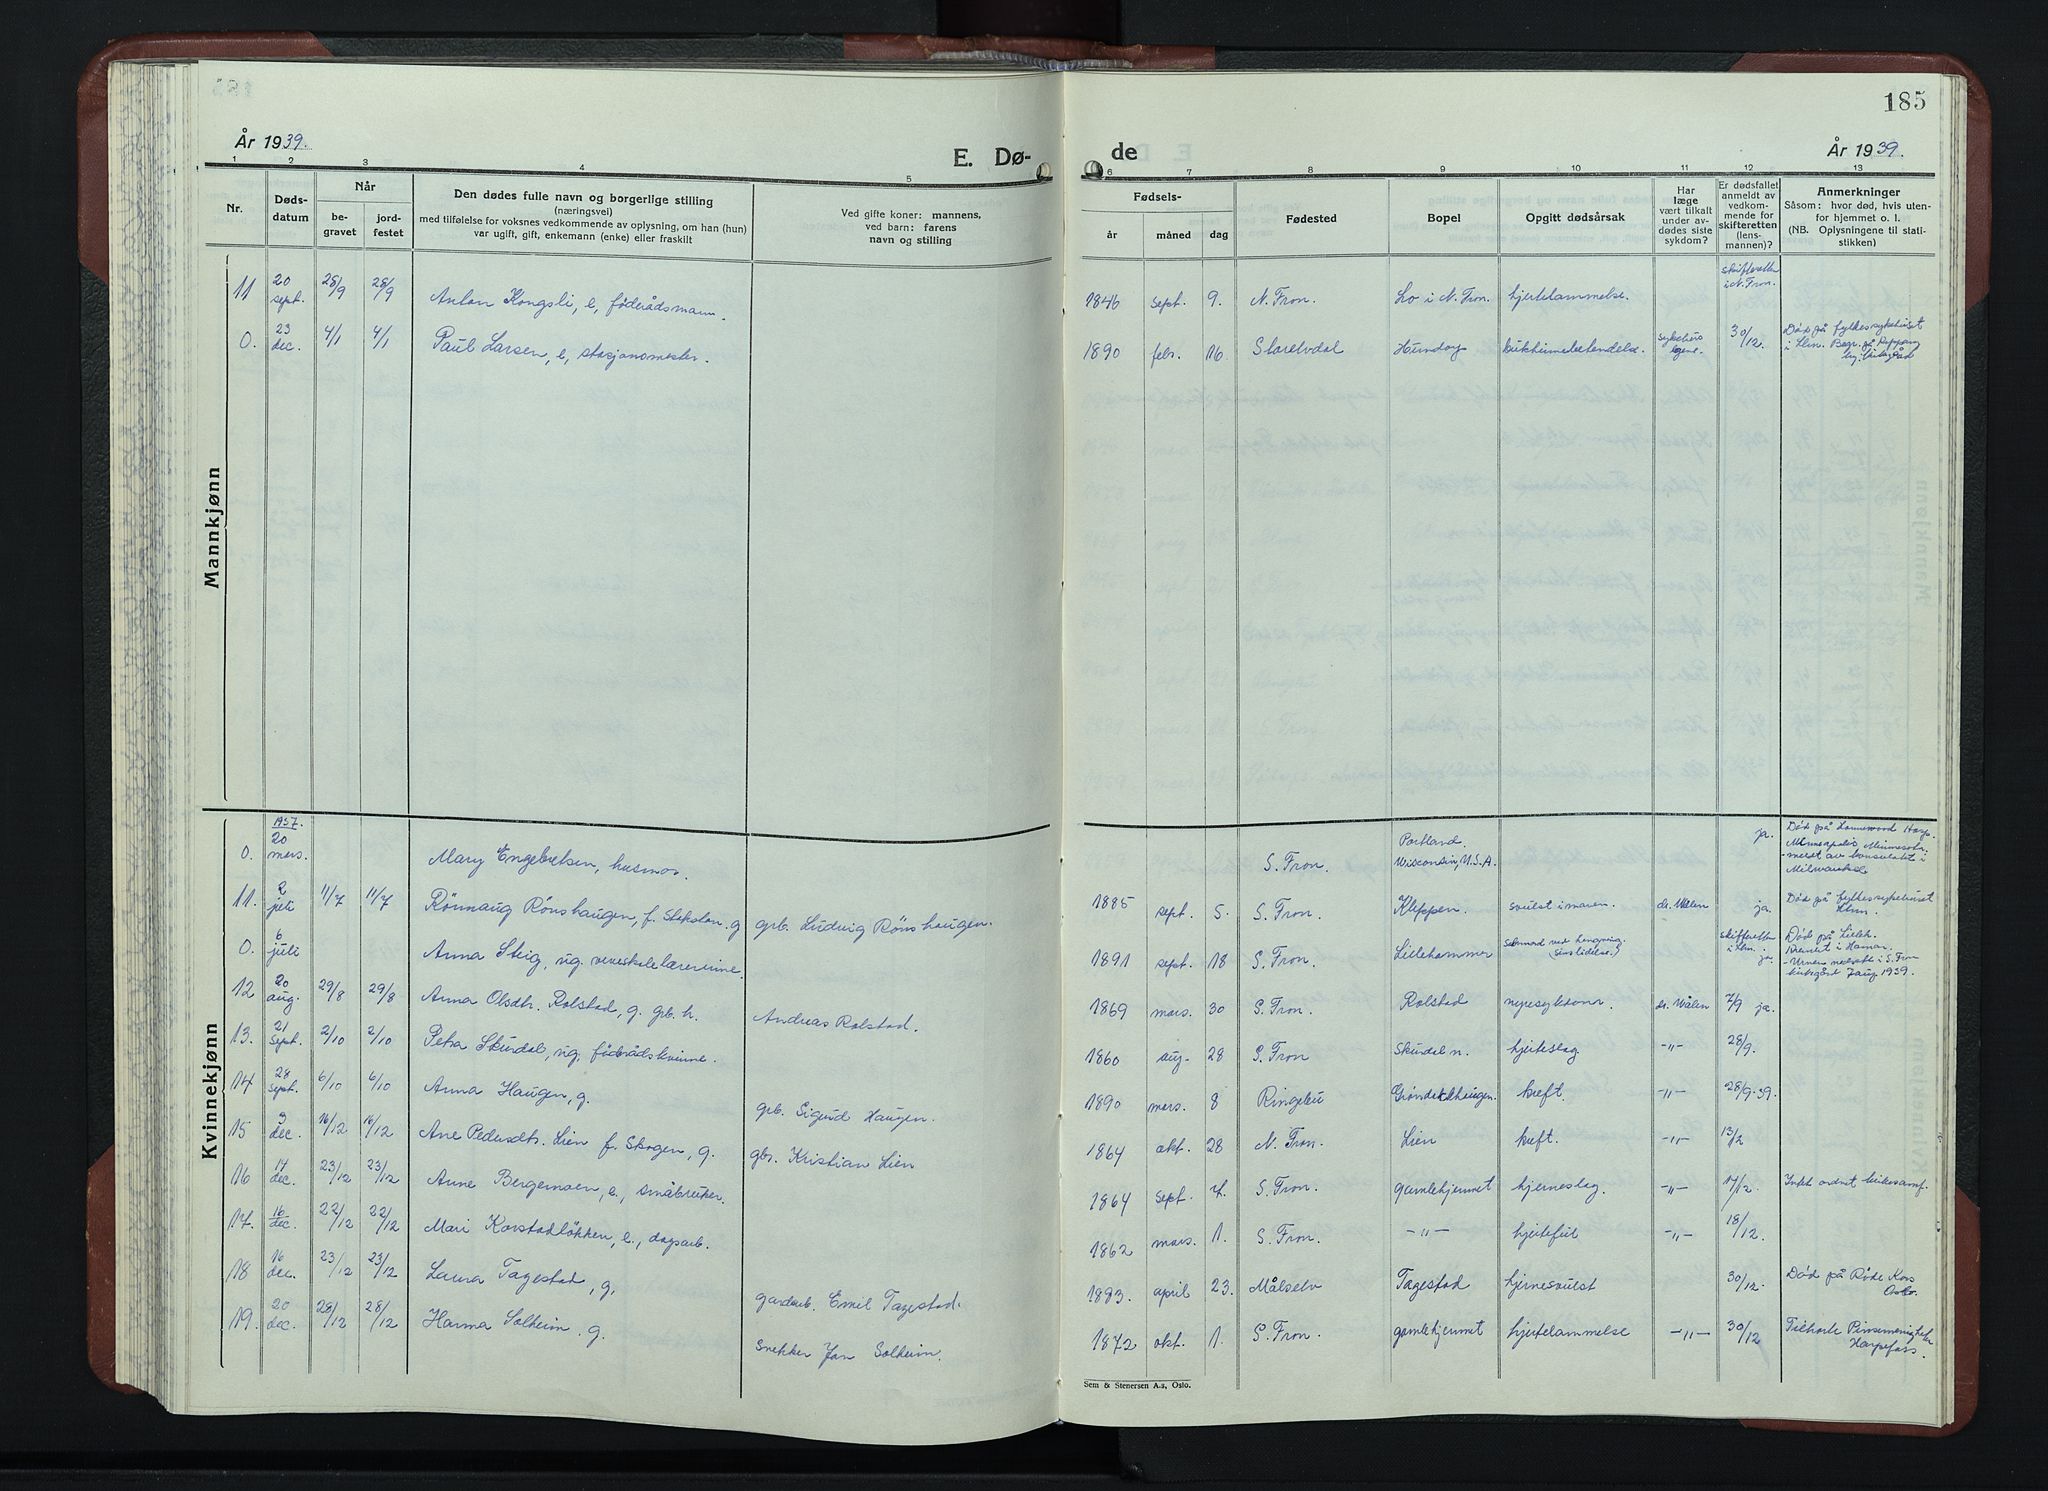 185
År 1939.
E. Dø-
de
År 1939.
1 2 3 4 5 6 7 8 9 10 11 12 13
Nr.
Døds-
datum
Når
be-
gravet
jord-
festet
Den dødes fulle navn og borgerlige stilling
(næringsvei)
med tilføielse for voksnes vedkommende av oplysning, om han (hun)
var ugift, gift, enkemann (enke) eller fraskilt
Ved gifte koner: mannens,
ved barn: farens
navn og stilling
Fødsels-
år måned dag
Fødested
Bopel
Opgitt dødsårsak
Har
læge
vært tilkalt
under av-
dødes siste
sykdom?
Er dødsfallet
anmeldt av
vedkom-
mende for
skifteretten
(lens-
mannen)?
Anmerkninger
Såsom: hvor død, hvis uten-
for hjemmet o. l.
(NB. Oplysningene til stati-
stikken)
Mannkjønn
11 20 sept. 28/9 28/9 Anton Kongsli, e, føderådsmann. 1846 sept. 9. N. Fron. Lo i N. Fron. hjertelammelse. skifteretten i N. Fron.
0. 23 dec. 4/1 4/1 Paul Larsen, e, stasjonsmester. 1890 febr. 16 Hundorp 30/12. Død på fylkessykehuset
Kvinnekjønn
0. 1937. 20 mars. Mary Engebretsen, husmor. S. Fron. Portland. Wisconsin, U.S.A. ja. Død på Minneapolis Minnesota. meldt av konsulatet i Milwaukee
11. 2 juli 11/7 11/7 Rønnaug Rønshaugen, f. g grb. Ludvig Rønshaugen. 1885 sept. 5. S. Fron. Kleppen. svulst i maven. dr. Wålen ja. Død på fylkessykehuset Lhm.
0. 6 juli Anna Steig, ug. veveskolelærerinne. 1891 sept. 18 S. Fron. Lillehammer Selvmord ved hengning. (sinslidelse.) skifteretten i Lhm. ja. Død på Lilleh. Kremert i Hamar. - Urnen nedsatt i S. Fron kirkegård 7 aug 1939.
12 20 aug. 29/8 29/8 Anna Olsdtr. Rolstad, g. grb. h. Andreas Rolstad. 1869 mars. 30 S. Fron. Rolstad nyresykdom dr. Wålen 7/9 ja.
13. 21 sept. 2/10 2/10 Petra Skurdal, ug. føderådskvinne. 1860 aug. 28 S. Fron Skurdal n. hjerteslag. -"- 28/9.
14 28 sept. 6/10 6/10 Anna Haugen, g. grb. Sigurd Haugen. 1890 mars. 8 Ringebu Grøndalshaugen. kreft. -"- 28/9-39.
15 9 dec. 16/12 16/12 Ane Pedersdtr. Lien f. Skogen, g. gbr. Kristian Lien 1864 okt. 28 N. Fron. Lien kreft. -"- 13/2
16 14 dec. 23/12 23/12 Anne Bergemoen, e., småbruker. 1864 sept. 7. S. Fron. gamlehjemmet hjerneslag. -"- 17/12. Intet ordnet kirkesamf.
17. 16 dec. 22/12 22/12 Mari Korstadløkken, e., dagarb. 1862 mars. 1. S. Fron. -"- hjertefeil -"- 18/12.
18 16 dec. 23/12 23/12 Laura Tagestad, g. gardarb. Emil Tagestad. 1883. april 23. Målselv Tagestad hjernesvulst 30/12. Død på Røde Kors Oslo.
19. 20 dec. 28/12 28/12 Hanna Solheim. g. Snekker Jon Solheim. 1872 okt. 1. S. Fron. gamlehjemmet hjertelammelse -"- 30/12 Tilhørte Pinsemenigheten Harpefoss.
Sem & Stenersen A.s, Oslo.